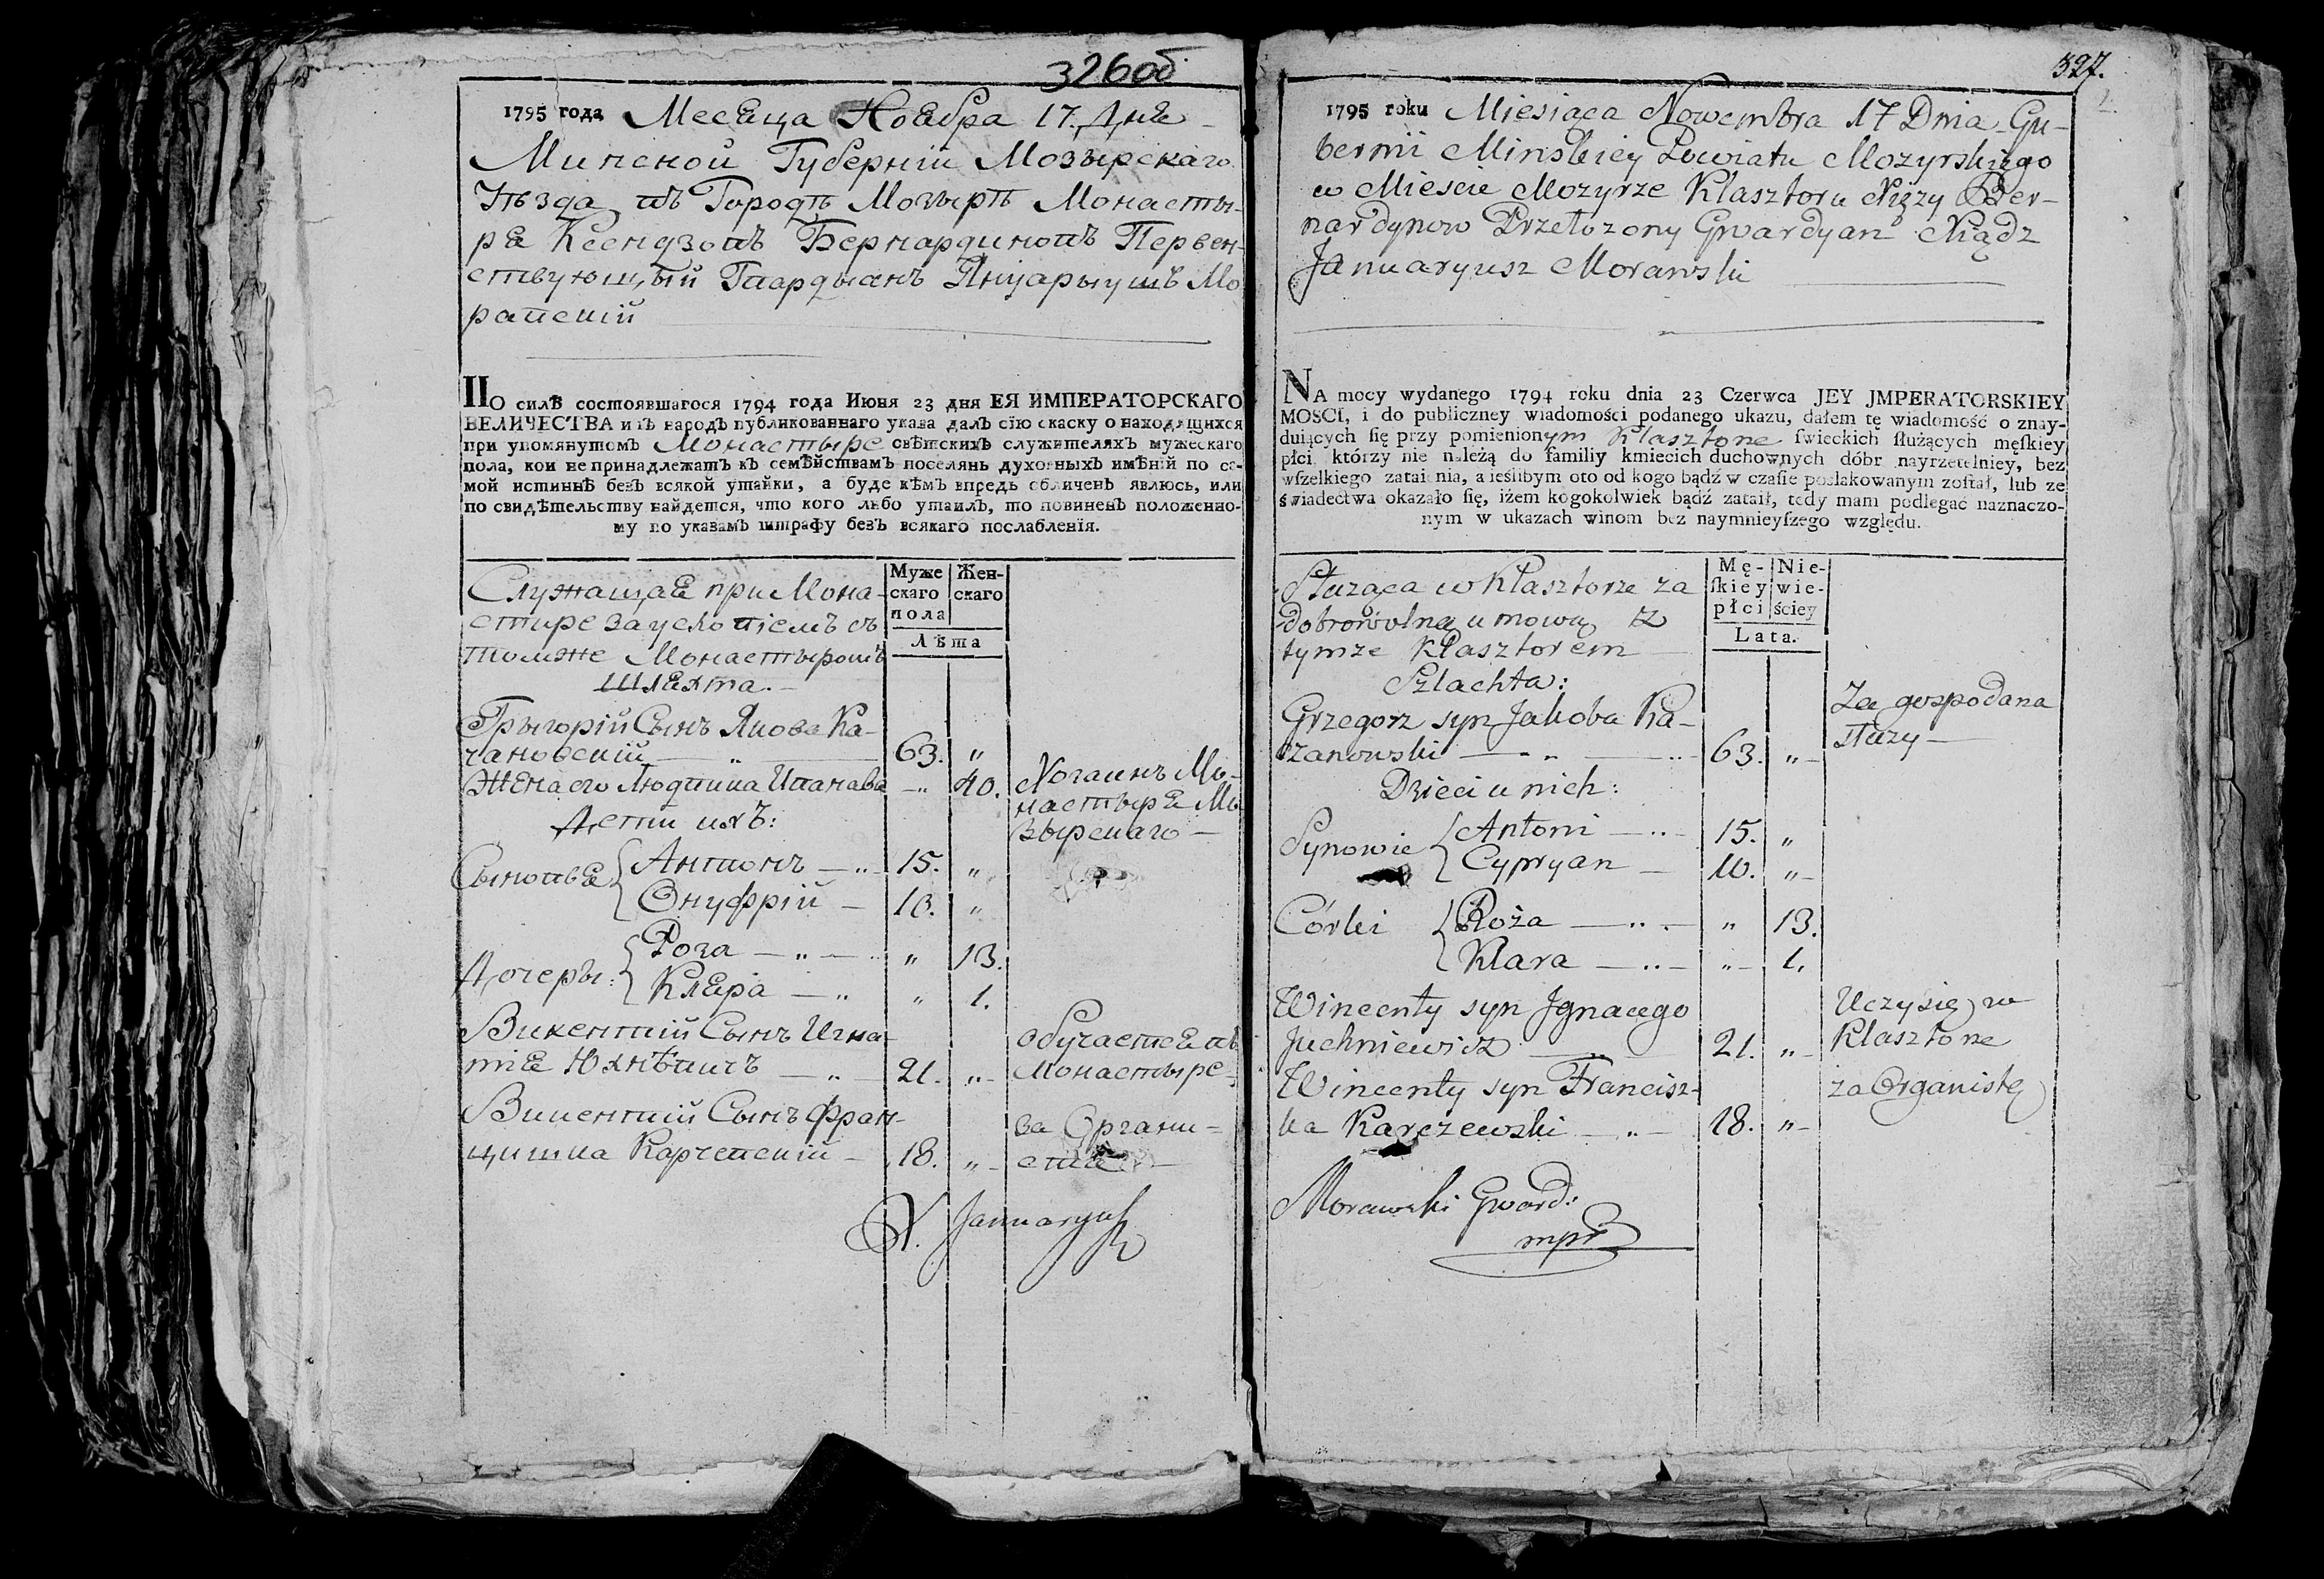 326об
1795 года Месеца Ноебра 17. Дне
Минской Губерніи Мозырскаго
Уѣзда въ Городѣ Мозырѣ Монасты-
ре Ксендзовъ Бернардиновъ Первен-
ствующый Гвардыанъ Януарыушъ Мо
равскій
ПО силѣ состоявшагося 1794 года Июня 23 дня ЕЯ ИМПЕРАТОРСКАГО
ВЕЛИЧЕСТВА и въ народъ публикованнаго указа далъ сїю скаску о находящихся
при упомянутомъ Монастыре свѣтскихъ служителяхъ мужескаго
пола, кои не принадлежатъ къ семѣйствамъ поселянъ духовныхъ имѣнїй по са-
мой истиннѣ безъ всякой утайки, а буде кѣмъ впредь обличенъ явлюсь, или
по свидѣтельству найдется, что кого либо утаилъ, то повиненъ положенно-
му по указамъ штрафу безъ всякаго послабленїя.
Служащае при Мона-
стире за условіемъ съ
томже Монастыромъ
Шлехта.
Муже
скаго
пола
Жен-
скаго
Лѣта
Грыгорій Сынъ Якова Ка-
чановскій 63. „
Жена его Людвика Иванава „ 40.
Дети ихъ:
Мо-
настыре Мо
зырскаго
Сыновье { Антонъ 15. „
Онуфрій 10. „
Дочеры: { Роза „ 13.
Клера „ 1.
Викентій Сынъ Игна-
тіе Юхнѣвичъ 21. „
обучаетсе въ
Монастыре
Викентій Сынъ Фран-
цишка Карчевскій 18. „
за Органи-
сты
X. Januaryusz
327.
1795 roku Miesiąca Nowembra 17 Dnia Gu-
bernii Minskiey Powiatu Mozyrskiego
w Miescie Mozyrze Klasztoru Xięzy Ber-
nardynow Przełozony Gwardyan Xiądz
Januaryusz Morawski
NA mocy wydanego 1794 roku dnia 23 Czerwca JEY JMPERATORSKIEY
MOSCI, i do publiczney wiadomości podanego ukazu, dałem tę wiadomość o znay-
duiących ſię przy pomienionym Klasztorze ſwieckich ſłużących męſkiey
płci którzy nie należą do familiy kmiecich duchownych dóbr nayrzetelniey, bez
wſzelkiego zataienia, a ieślibym oto od kogo bądź w czaſie poſzlakowanym zoſtał, lub ze
świadectwa okazało ſię, iżem kogokolwiek bądź zataił, tedy mam podlegać naznaczo-
nym w ukazach winom bez naymnieyſzego względu.
Słuząca w Klasztorze za
dobrowolną umową z
tymze Klasztorem
Szlachta:
Mę-
ſkiey
płci
Nie-
wie-
ściey
Lata.
Grzegorz syn Jakoba Ka-
czanowski 63. „
Za gospodana
słuzy
Dzieci u nich:
Synowie { Antoni 15. „
Cypryan 10. „
Córki { Roża „ 13.
Klara „ 1.
Wincenty syn Jgnacego
Juchniewicz 21. „
Uczy się w
Klasztorze
Wincenty syn Francisz-
ka Karczewski 18. „
za Organistę
Morawski Gward:
mpr